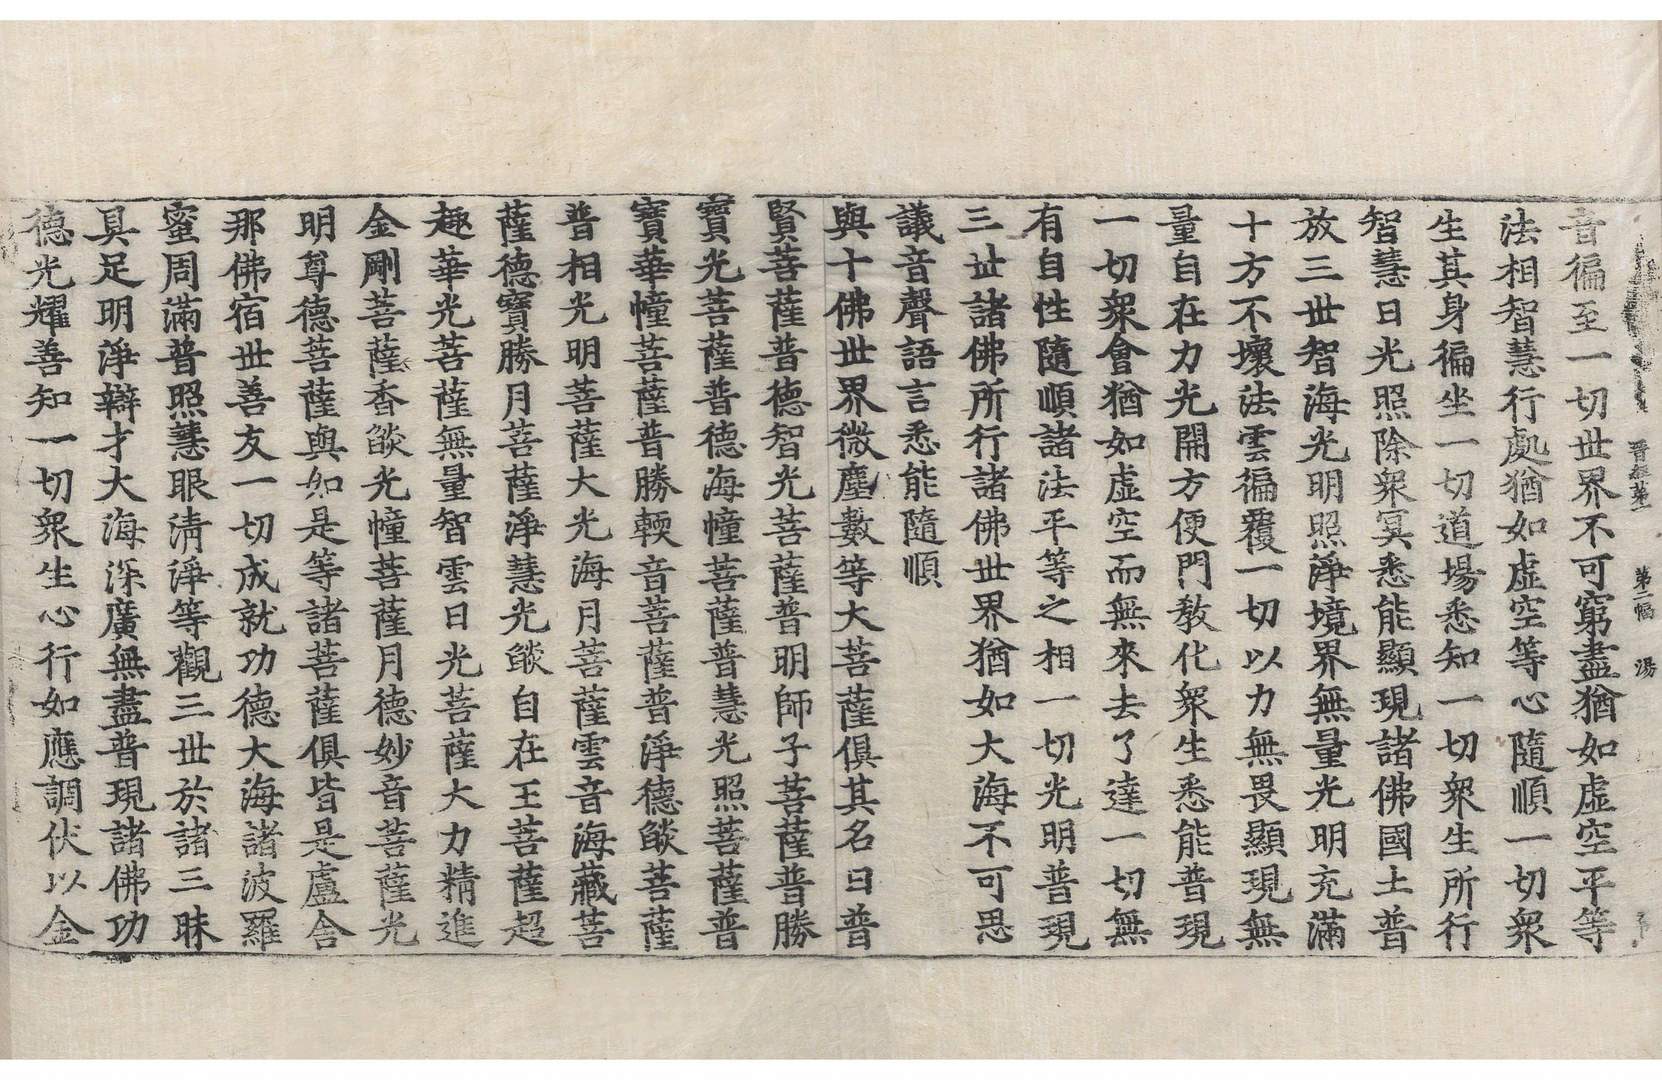 晋經第一　第二幅　湯
音徧至一切世界不可窮盡猶如虛空平等
法相智慧行處猶如虛空等心隨順一切衆
生其身徧坐一切道場悉知一切衆生所行
智慧日光照除衆冥悉能顯現諸佛國土普
放三世智海光明照淨境界無量光明充滿
十方不壞法雲徧覆一切以力無畏顯現無
量自在力光開方便門教化衆生悉能普現
一切衆會猶如虛空而無來去了達一切無
有自性隨順諸法平等之相一切光明普現
三世諸佛所行諸佛世界猶如大海不可思
議音聲語言悉能隨順
與十佛世界微塵數等大菩薩俱其名曰普
賢菩薩普德智光菩薩普明師子菩薩普勝
寶光菩薩普德海幢菩薩普慧光照菩薩普
寶華幢菩薩普勝輭音菩薩普淨德燄菩薩
普相光明菩薩大光海月菩薩雲音海藏菩
薩德寶勝月菩薩淨慧光燄自在王菩薩超
趣華光菩薩無量智雲日光菩薩大力精進
金剛菩薩香燄光幢菩薩月德妙音菩薩光
明尊德菩薩與如是等諸菩薩俱皆是盧舍
那佛宿世善友一切成就功德大海諸波羅
蜜周滿普照慧眼清淨等觀三世於諸三昧
具足明淨辯才大海深廣無盡普現諸佛功
德光耀善知一切衆生心行如應調伏以金